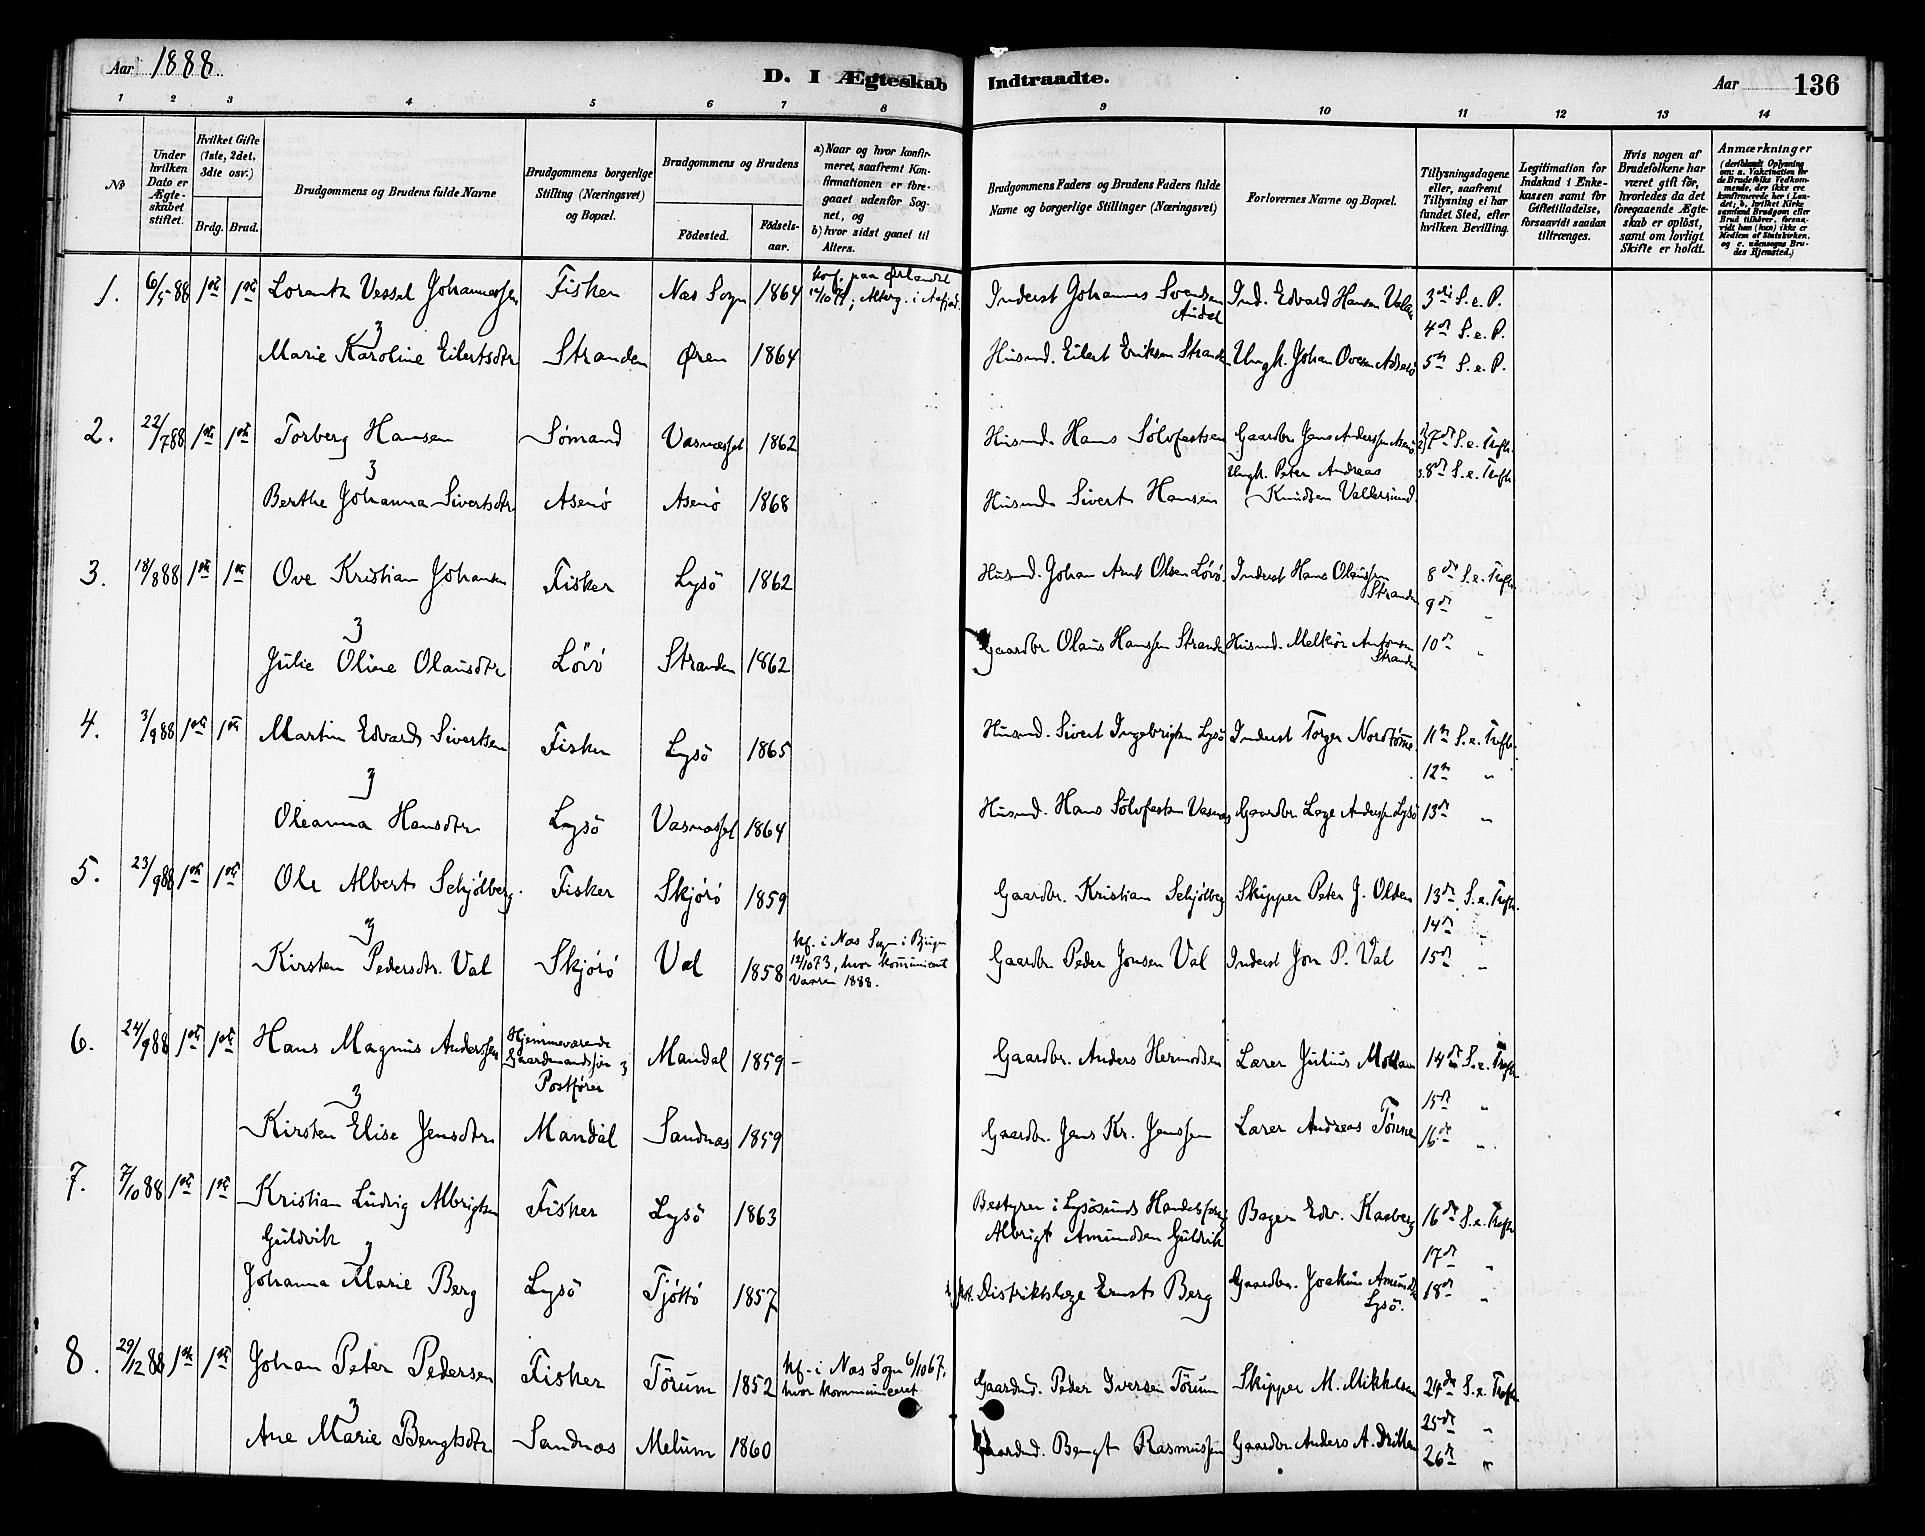 Aar 1888
D. I Ægteskab Indtraadte.
Aar 136
1 2 3 4 5 6 7 8 9 10 11 12 13 14
No
Under hvilken Dato er Ægteskabet stiftet.
Hvilket Gifte (1ste, 2det, 3die osv.)
Brdg. Brud.
Brudgommens og Brudens fulde Navne
Brudgommens borgerlige Stilling (Næringsvei) og Bopæl.
Brudgommens og Brudens
Fødested. Fødselsaar.
a) Naar og hvor konfirmeret, saafremt Konfirmationen er foregaaet udenfor Sognet, og
b) hvor sidst gaaet til Alters.
Brudgommens Faders og Brudens Faders fulde Navne og borgerlige Stillinger (Næringsvei)
Forlovernes Navne og Bopæl.
Tillysningsdagene eller, saafremt Tillysning ei har fundet Sted, efter hvilken Bevilling.
Legitimation for Indskud i Enkekassen samt for Giftetilladelse, forsaavidt saadan tiltrænges.
Hvis nogen af Brudefolkene har været gift før, hvorledes da det foregaaende Ægteskab er opløst, samt om lovligt Skifte er holdt.
Anmærkninger
1. 6/5 88 1ste 1ste Lorents Vessel Johannessen Fisker Næs Sogn 1864 Konf. paa Ørlandet Inderst Johannes Svendsen Ind. Edvard Hansen 3die S. e. P.
4de S. e. P.
Marie Karoline Eilertsdtr Stranden Øren 1864 Husmd. Eilert Eriksen Stranden Ungk. Johan Ovesen 5te S. e. P.
2. 22/7 88 1ste 1ste Torberg Hansen Sømand Vasnæsset 1862 Husmd. Hans Sølvfestsen Gaardbr. Jens Anderssen Asenø 7de S. e. Trefh.
Ungk. Peter Andreas 8de S. e. Trefh.
Berthe Johanna Sivertsdtr Asenø Asenø 1868 Husmd. Sivert Hansen Knudsen Vallersund
3. 18/8 88 1ste 1ste Ove Kristian Johansen Fisker Lysö 1862 Husmd. Johan Arnt Olsen Lövö Inderst Hans Olaussen Stranden 8de S. e. Trefh.
9de "
Julie Oline Olausdtr Lövö Stranden 1862 Gaardbr Olaus Hanssen Stranden Husmd. Melkior Antonsen Stranden 10de "
4. 3/9 88 1ste 1ste Martin Edvard Sivertsen Fisker Lysö 1865 Husmd. Sivert Ingebrigtsen Lysö Inderst Torger 11te S. e. Trefh.
12te "
Oleanna Hansdtr Lysö Vasnæsset 1864 Husmd. Hans Sölvfestsen Vasnæs Gaardbr. Anderssen Lysö 13de "
5. 23/9 88 1ste 1ste Ole Albert Schjölberg Fisker Skjórö 1859 Gaardbr. Kristian Schjölberg Skipper Peter J. Olden 13de S. e. Trefh.
14de "
Kirsten Pedersdtr. Val Skjórö Val 1858 kf. i Næs Sogn i Bjugn 12/10 73, hvor kommunicent Vaaren 1888. Gaardbr. Peder Jonsen Val Inderst Jon P. Val 15de "
6. 24/9 88 1ste 1ste Hans Magnus Anderssen Hjemmeværende Gaardmandssøn 3 Postfører Mandal 1859 – Gaardbr. Anders Hermodsen Lærer Julius 14de S. e. Trefh.
15de "
Kirsten Elise Jensdtr Mandal Sandnæs 1859 Gaardbr. Jens Kr. Jenssen Lærer Andreas Tønne 16de "
7. 7/10 88 1ste 1ste Kristian Ludvig Albrigtsen Guldvik Fisker Lysö 1863 Bestyrer i Lysösunds Handelsforeg Albrigt Amundsen Guldvik Bager Edv. 16de S. e. Trefh.
17de "
Johanna Marie Berg Lysö Tjöttö 1857 Distriktslæge Ernst Berg Gaardbr. Joakim Amundsen Lysö. 18de "
8. 29/12 88 1ste 1ste Johan Peter Pedersen Fisker Törum 1852 kf. i Næs Sogn 6/10 67, hvor kommuniceret Gaardmd. Peder Iversen Törum Skipper M. Mikkelsen 24de S. e. Trefh.
25de "
Ane Marie Bengtsdtr Sandnæs Melum 1860 Gaardmd. Bengt Rasmussen Gaardbr Anders A. 26de "